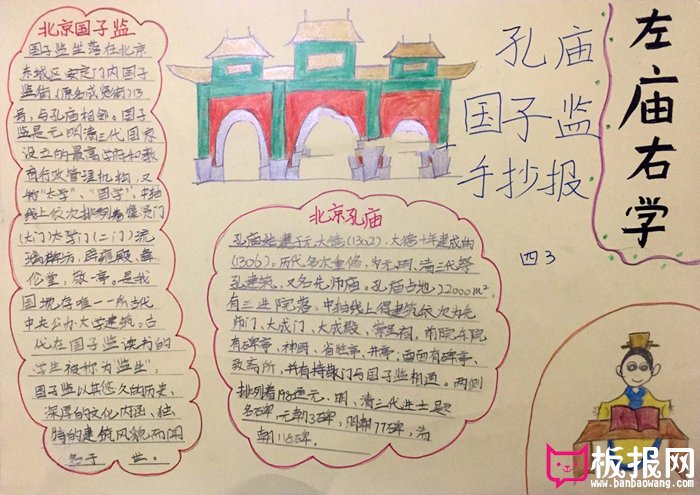 北京国子监
国子监坐落在北京
东城区安定门内国子
监街(原名成贤街)13
号,与孔庙相邻。国子
监是元明清三代国家
设立的最高学府和教
育行政管理机构,又
称"太学"、"国学"。中轴
线上依次排列着集贤门
(大门)太学门(二门)流
璃牌坊,辟雍殿、彝
伦堂,敬一亭。是我
国现存唯一一所古代
中央公办大学建筑。古
代在国子监读书的
学生被称为"监生"。
国子监以其悠久的历史,
深厚的文化内涵,独
特的建筑风貌而闻
名于 世。
孔庙
国子监
手抄报
四3
左庙右学
北京孔庙
孔庙始建于元大德(1302),大德十年建成的
(1306)。历代多次重修,为元、明、清三代祭
孔建筑,又名先师庙。孔庙占地22000m²,
有三进院落。中轴线上得建筑依次为先
师门、大成门、大成殿、崇圣祠,前院东院
有碑亭、神厨、省牲亭、井亭;西面有碑亭、
致斋所,并有持敬门与国子监相通。两侧
排列着198通元、明、清三代进士题
名碑,元朝3碑,明朝77碑,清
朝118碑。
板报网
www.banbaowang.com